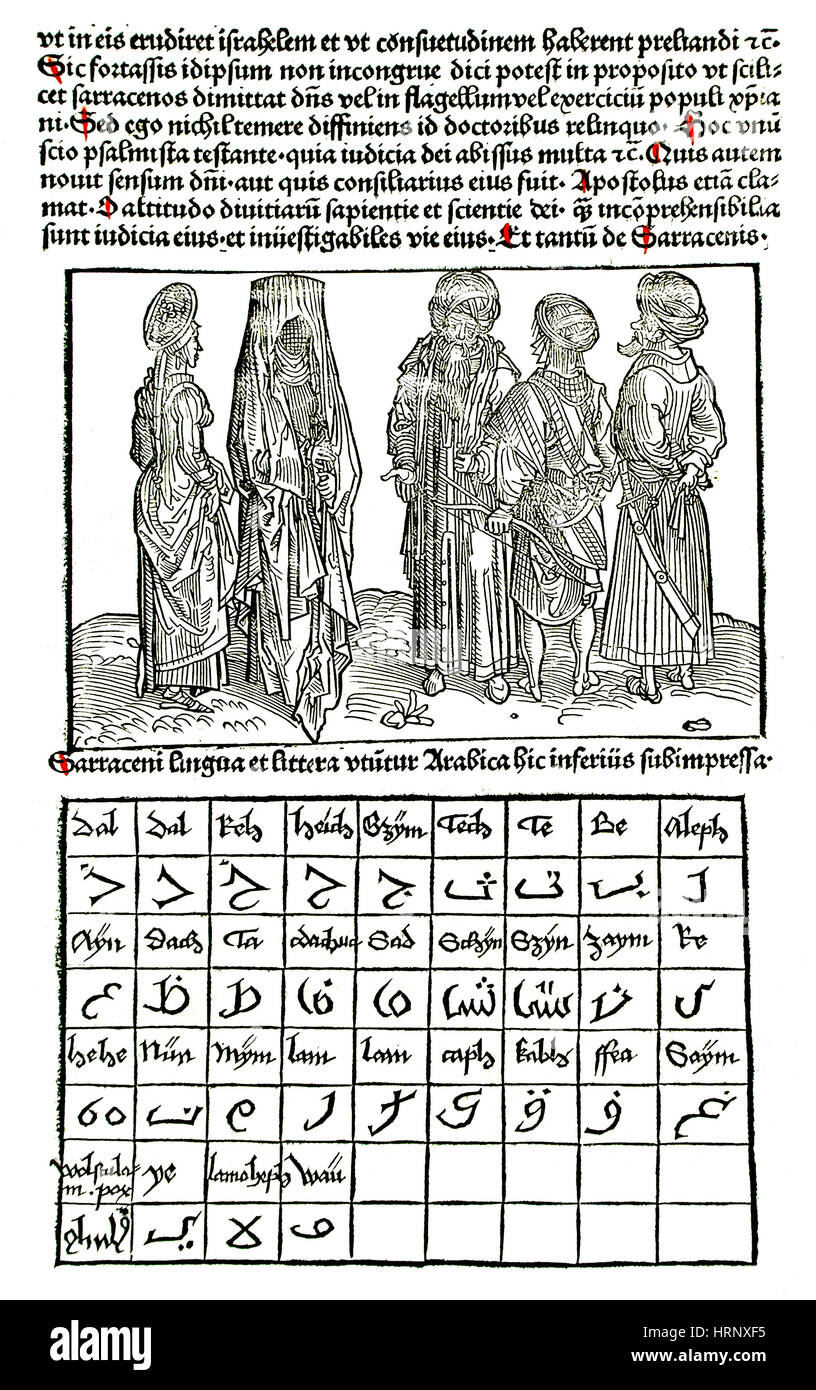 vt in eis erudiret israhelem et vt consuetudinem haberent preliandi ⁊c̄.
Sic fortassis idipsum non incongrue dici potest in proposito vt scili-
cet sarracenos dimittat dn̄s vel in flagellum vel exerciciū populi xp̄ia
ni. Sed ego nichil temere diffiniens id doctoribus relinquo. Hoc vnū
scio psalmista testante. quia iudicia dei abissus multa ⁊c̄. Quis autem
nouit sensum dn̄i. aut quis consiliarius eius fuit. Apostolus etiā cla-
mat. O altitudo diuitiarū sapientie et scientie dei. q̄ incōprehensibilia
sunt iudicia eius. et inuestigabiles vie eius. Et tantū de Sarracenis.
Sarraceni lingua et littera vtūtur Arabica hic inferius subimpressa.
Dal Dal Keh heich Gzÿm Tech Te Be Aleph
ذ د خ ح ج ث ت ب ا
Aÿn Dach Ta Sad Schÿn Szÿn Zaym Re
ع ظ ط ض ص ش س ز ر
hehe Nün Mÿm lam lam caph kabh ffea Gaÿm
ه ن م ل ك ق ف غ
ye lamoheph Wau
ي لا و
alamy
alamy
Image ID: HRNXF5
www.alamy.com